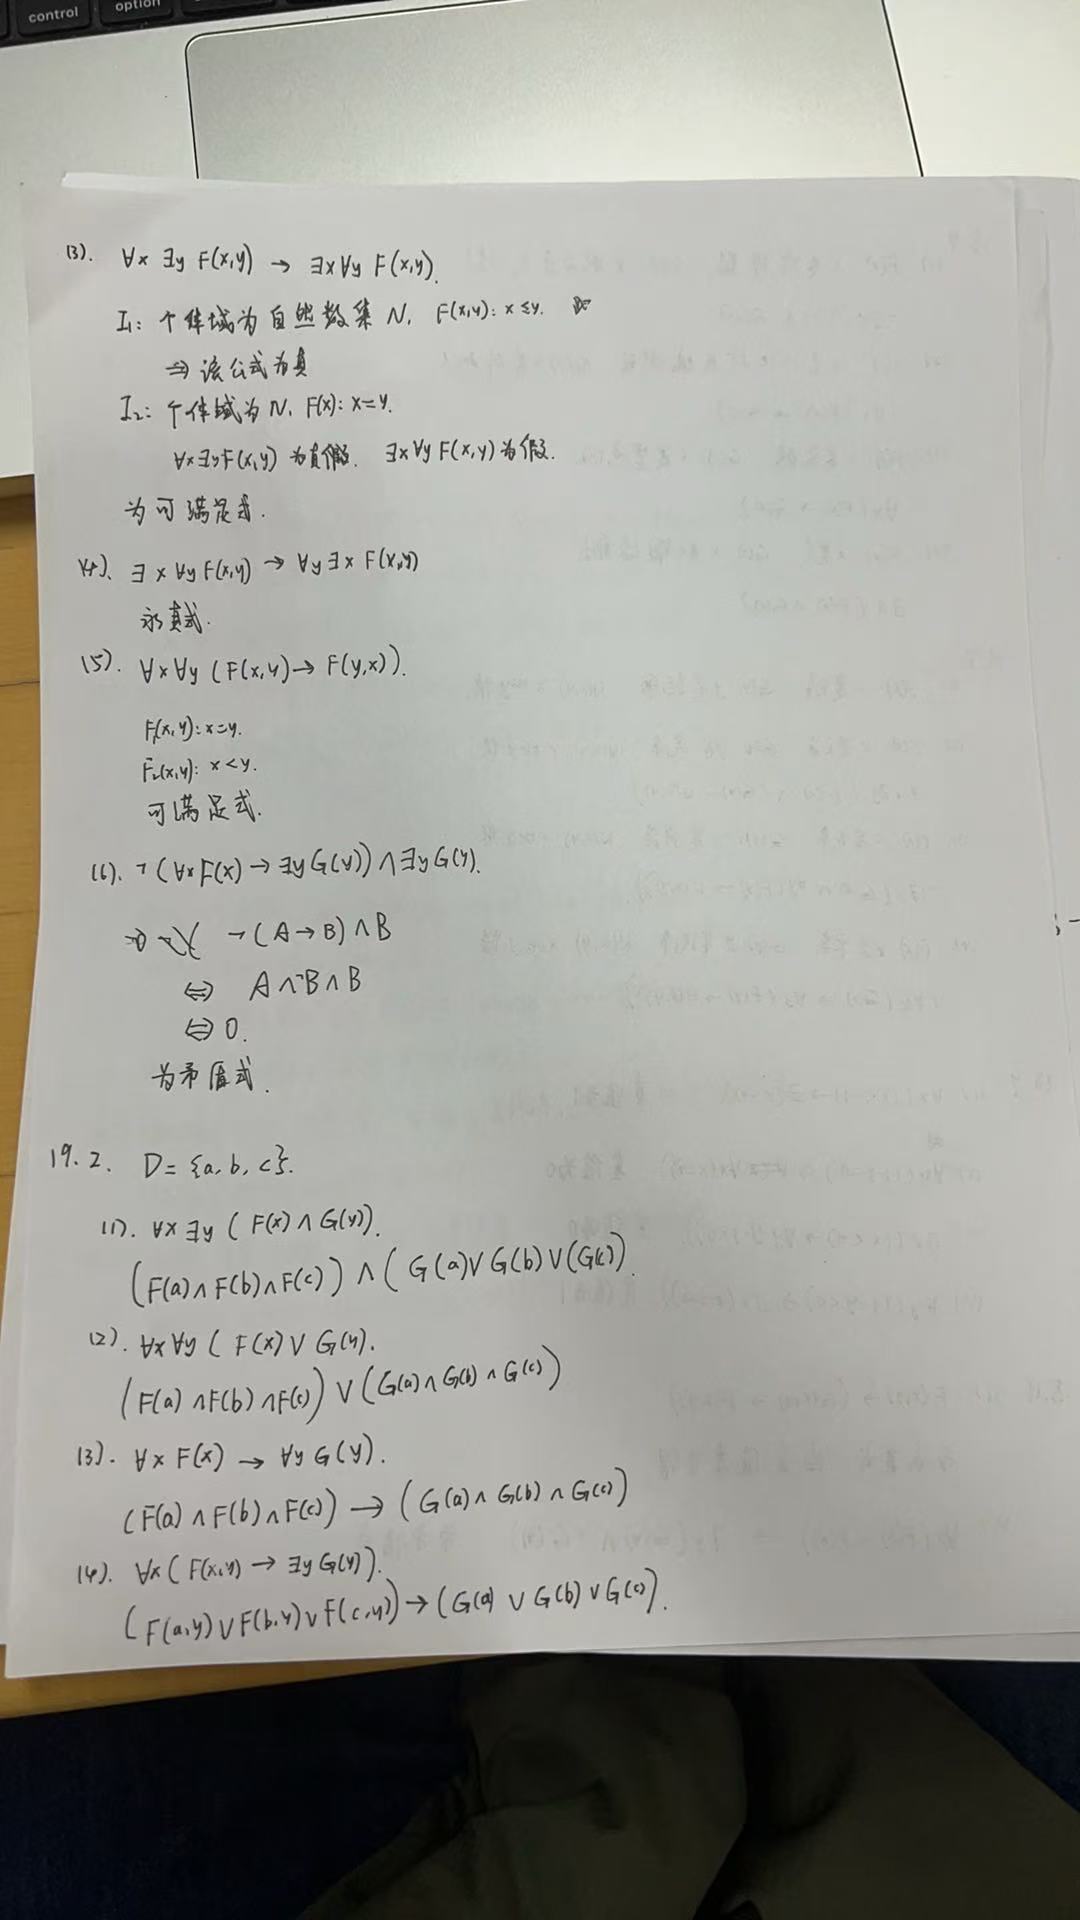 control
option
(3). ∀x ∃y F(x,y) → ∃x∀y F(x,y).
I₁: 个体域为自然数集 N, F(x,y): x≤y.
⇒ 该公式为真
I₂: 个体域为 N, F(x): x=y.
∀x∃yF(x,y) 为真 ∃x∀y F(x,y)为假.
为可满足式.
(4). ∃x∀yF(x,y) → ∀y∃x F(x,y)
永真式.
(5). ∀x∀y (F(x,y)→ F(y,x)).
F₁(x,y): x=y.
F₂(x,y): x<y.
可满足式.
(6). ¬(∀xF(x)→∃yG(y))∧∃yG(y).
¬(A→B)∧B
⇔ A∧¬B∧B
⇔ 0.
为矛盾式.
19.2. D={a,b,c}.
(1). ∀x∃y (F(x)∧G(y)).
(F(a)∧F(b)∧F(c))∧(G(a)∨G(b)∨(G(c)).
(2). ∀x∀y (F(x)∨G(y).
(F(a)∧F(b)∧F(c))∨(G(a)∧G(b)∧G(c))
(3). ∀x F(x) → ∀y G(y).
(F(a)∧F(b)∧F(c))→(G(a)∧G(b)∧G(c))
(4). ∀x(F(x,y)→∃yG(y)).
(F(a,y)∨F(b,y)∨F(c,y))→(G(a)∨G(b)∨G(c)).